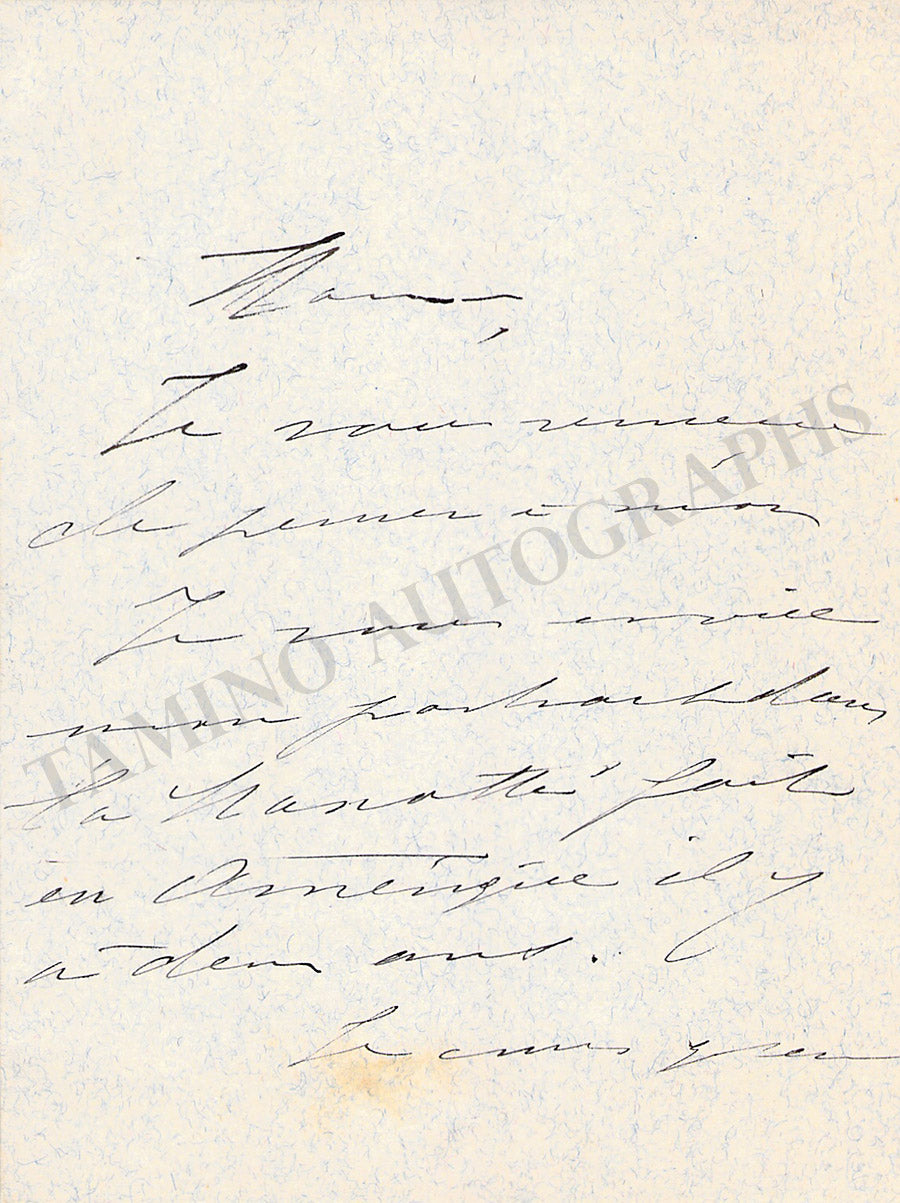 Je vous remercie
de penser à moi
Je vous envoie
mon portrait dans
la fait
en Amérique il y
a deux ans.
Je crois que
TAMINO AUTOGRAPHS